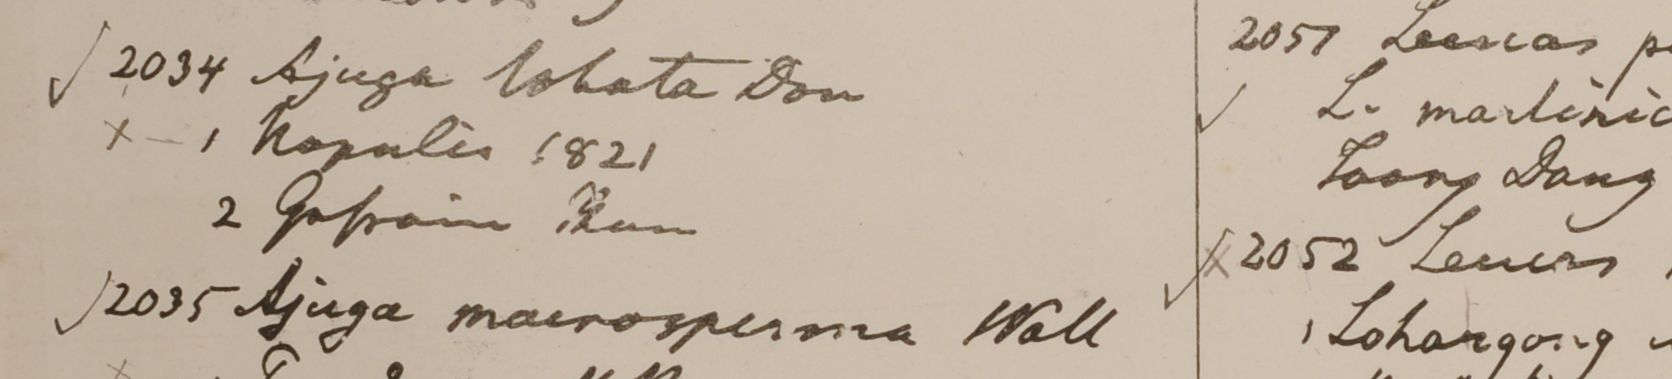 √ 2034 Ajuga lobata Don
x – 1 Napalia 1821
2 Gossain Than
√ 2035 Ajuga macrosperma Wall
2051 Leucas
√ L. martinic
Toong Dong
√ x 2052 Leucas
1 Lohargong